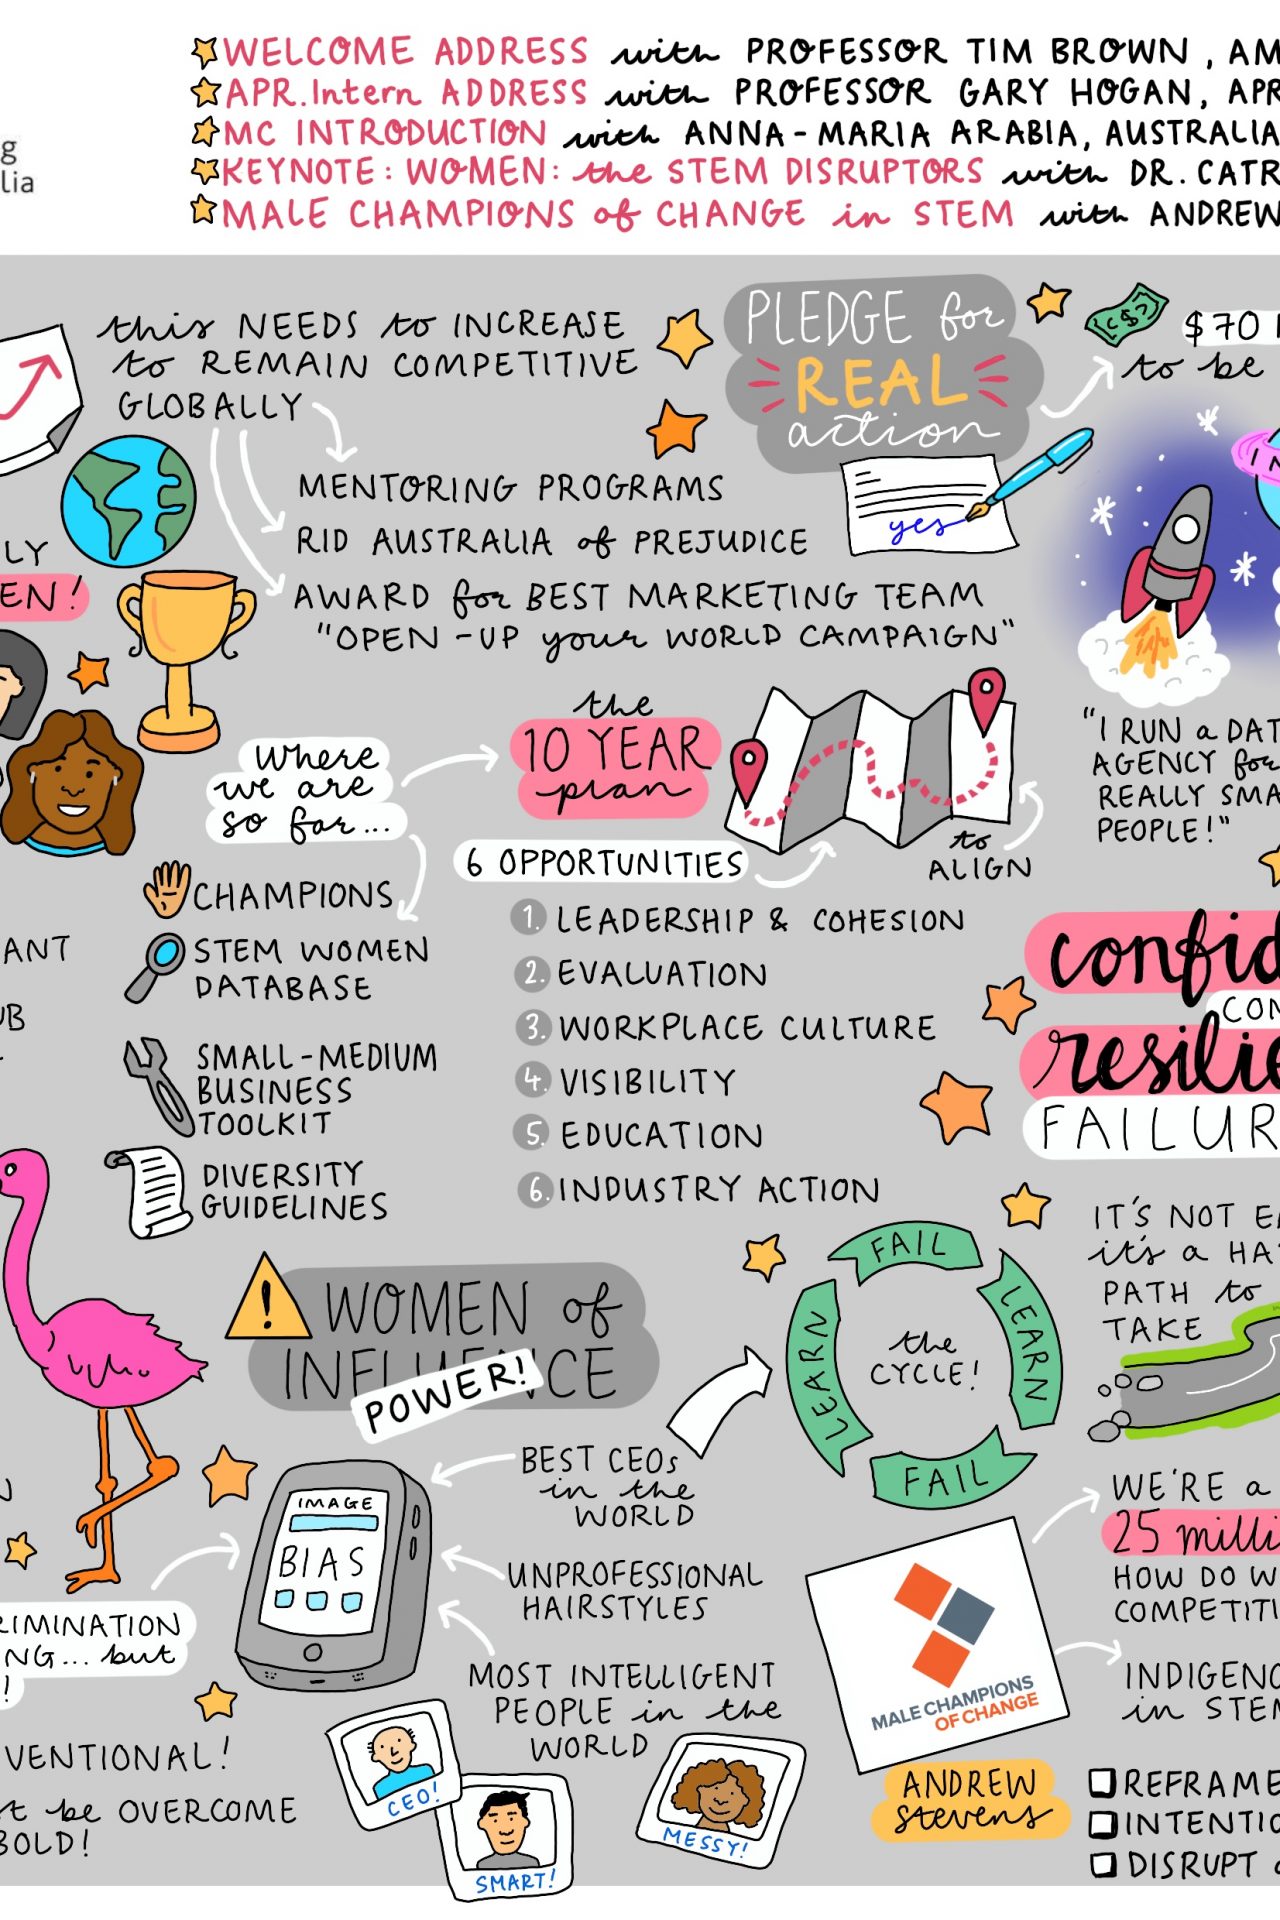 WELCOME ADDRESS with PROFESSOR TIM BROWN, AM
APR.Intern ADDRESS with PROFESSOR GARY HOGAN, APR
MC INTRODUCTION with ANNA-MARIA ARABIA, AUSTRALIA
KEYNOTE: WOMEN: the STEM DISRUPTORS with DR. CATR
MALE CHAMPIONS of CHANGE in STEM with ANDREW
g
lia
this NEEDS to INCREASE
to REMAIN COMPETITIVE
GLOBALLY
MENTORING PROGRAMS
RID AUSTRALIA of PREJUDICE
AWARD for BEST MARKETING TEAM
"OPEN-UP your WORLD CAMPAIGN"
PLEDGE for
REAL
action
yes
$70
to be
LY
EN!
Where
we are
so far...
the
10 YEAR
plan
to
ALIGN
6 OPPORTUNITIES
1. LEADERSHIP & COHESION
2. EVALUATION
3. WORKPLACE CULTURE
4. VISIBILITY
5. EDUCATION
6. INDUSTRY ACTION
CHAMPIONS
STEM WOMEN
DATABASE
SMALL-MEDIUM
BUSINESS
TOOLKIT
DIVERSITY
GUIDELINES
ANT
UB
IN
"I RUN a DAT
AGENCY for
REALLY SMA
PEOPLE!"
confid
CON
resilie
FAILUR
IT'S NOT EA
it's a HA
PATH to
TAKE
! WOMEN of
INFLUENCE
POWER!
FAIL
LEARN
FAIL
LEARN
the
CYCLE!
IMAGE
BIAS
BEST CEOs
in the
WORLD
UNPROFESSIONAL
HAIRSTYLES
MOST INTELLIGENT
PEOPLE in the
WORLD
CEO!
SMART!
MESSY!
RIMINATION
NG... but
!
VENTIONAL!
t be OVERCOME
BOLD!
MALE CHAMPIONS
OF CHANGE
ANDREW
stevens
WE'RE a
25 milli
HOW DO W
COMPETITI
INDIGENO
in STEM
REFRAME
INTENTIO
DISRUPT